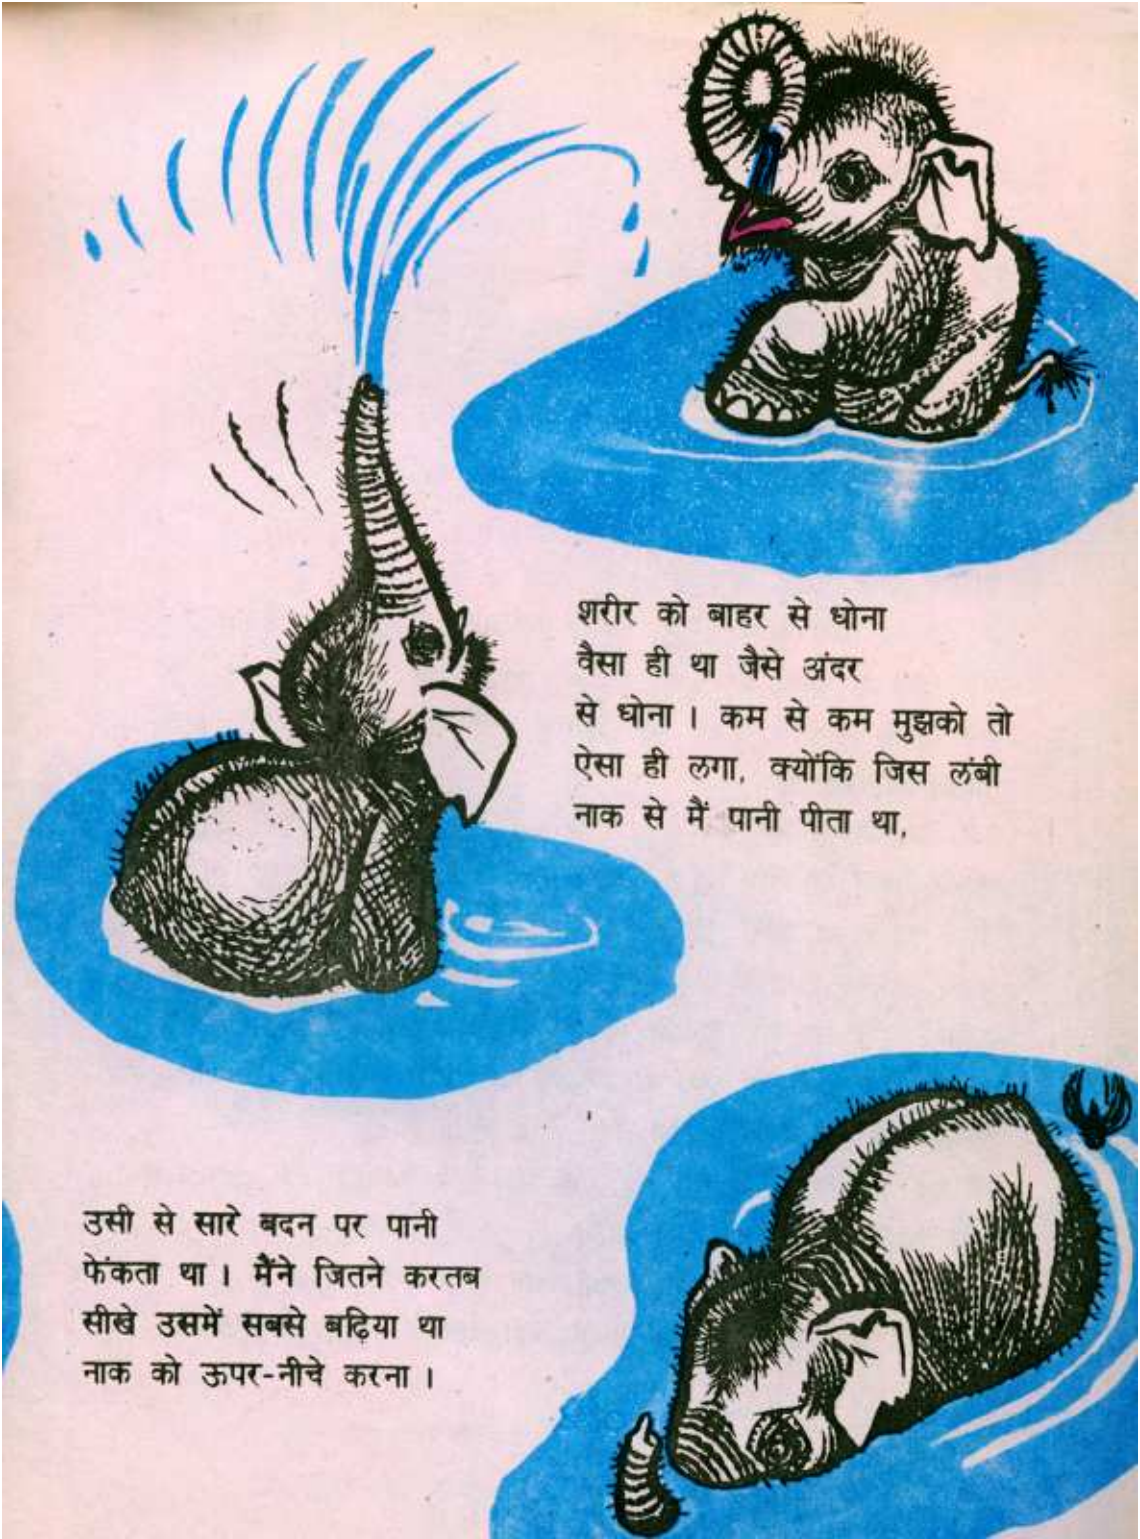 शरीर को बाहर से धोना
वैसा ही था जैसे अंदर
से धोना। कम से कम मुझको तो
ऐसा ही लगा, क्योंकि जिस लंबी
नाक से मैं पानी पीता था,
उसी से सारे बदन पर पानी
फेंकता था। मैंने जितने करतब
सीखे उसमें सबसे बढ़िया था
नाक को ऊपर-नीचे करना।